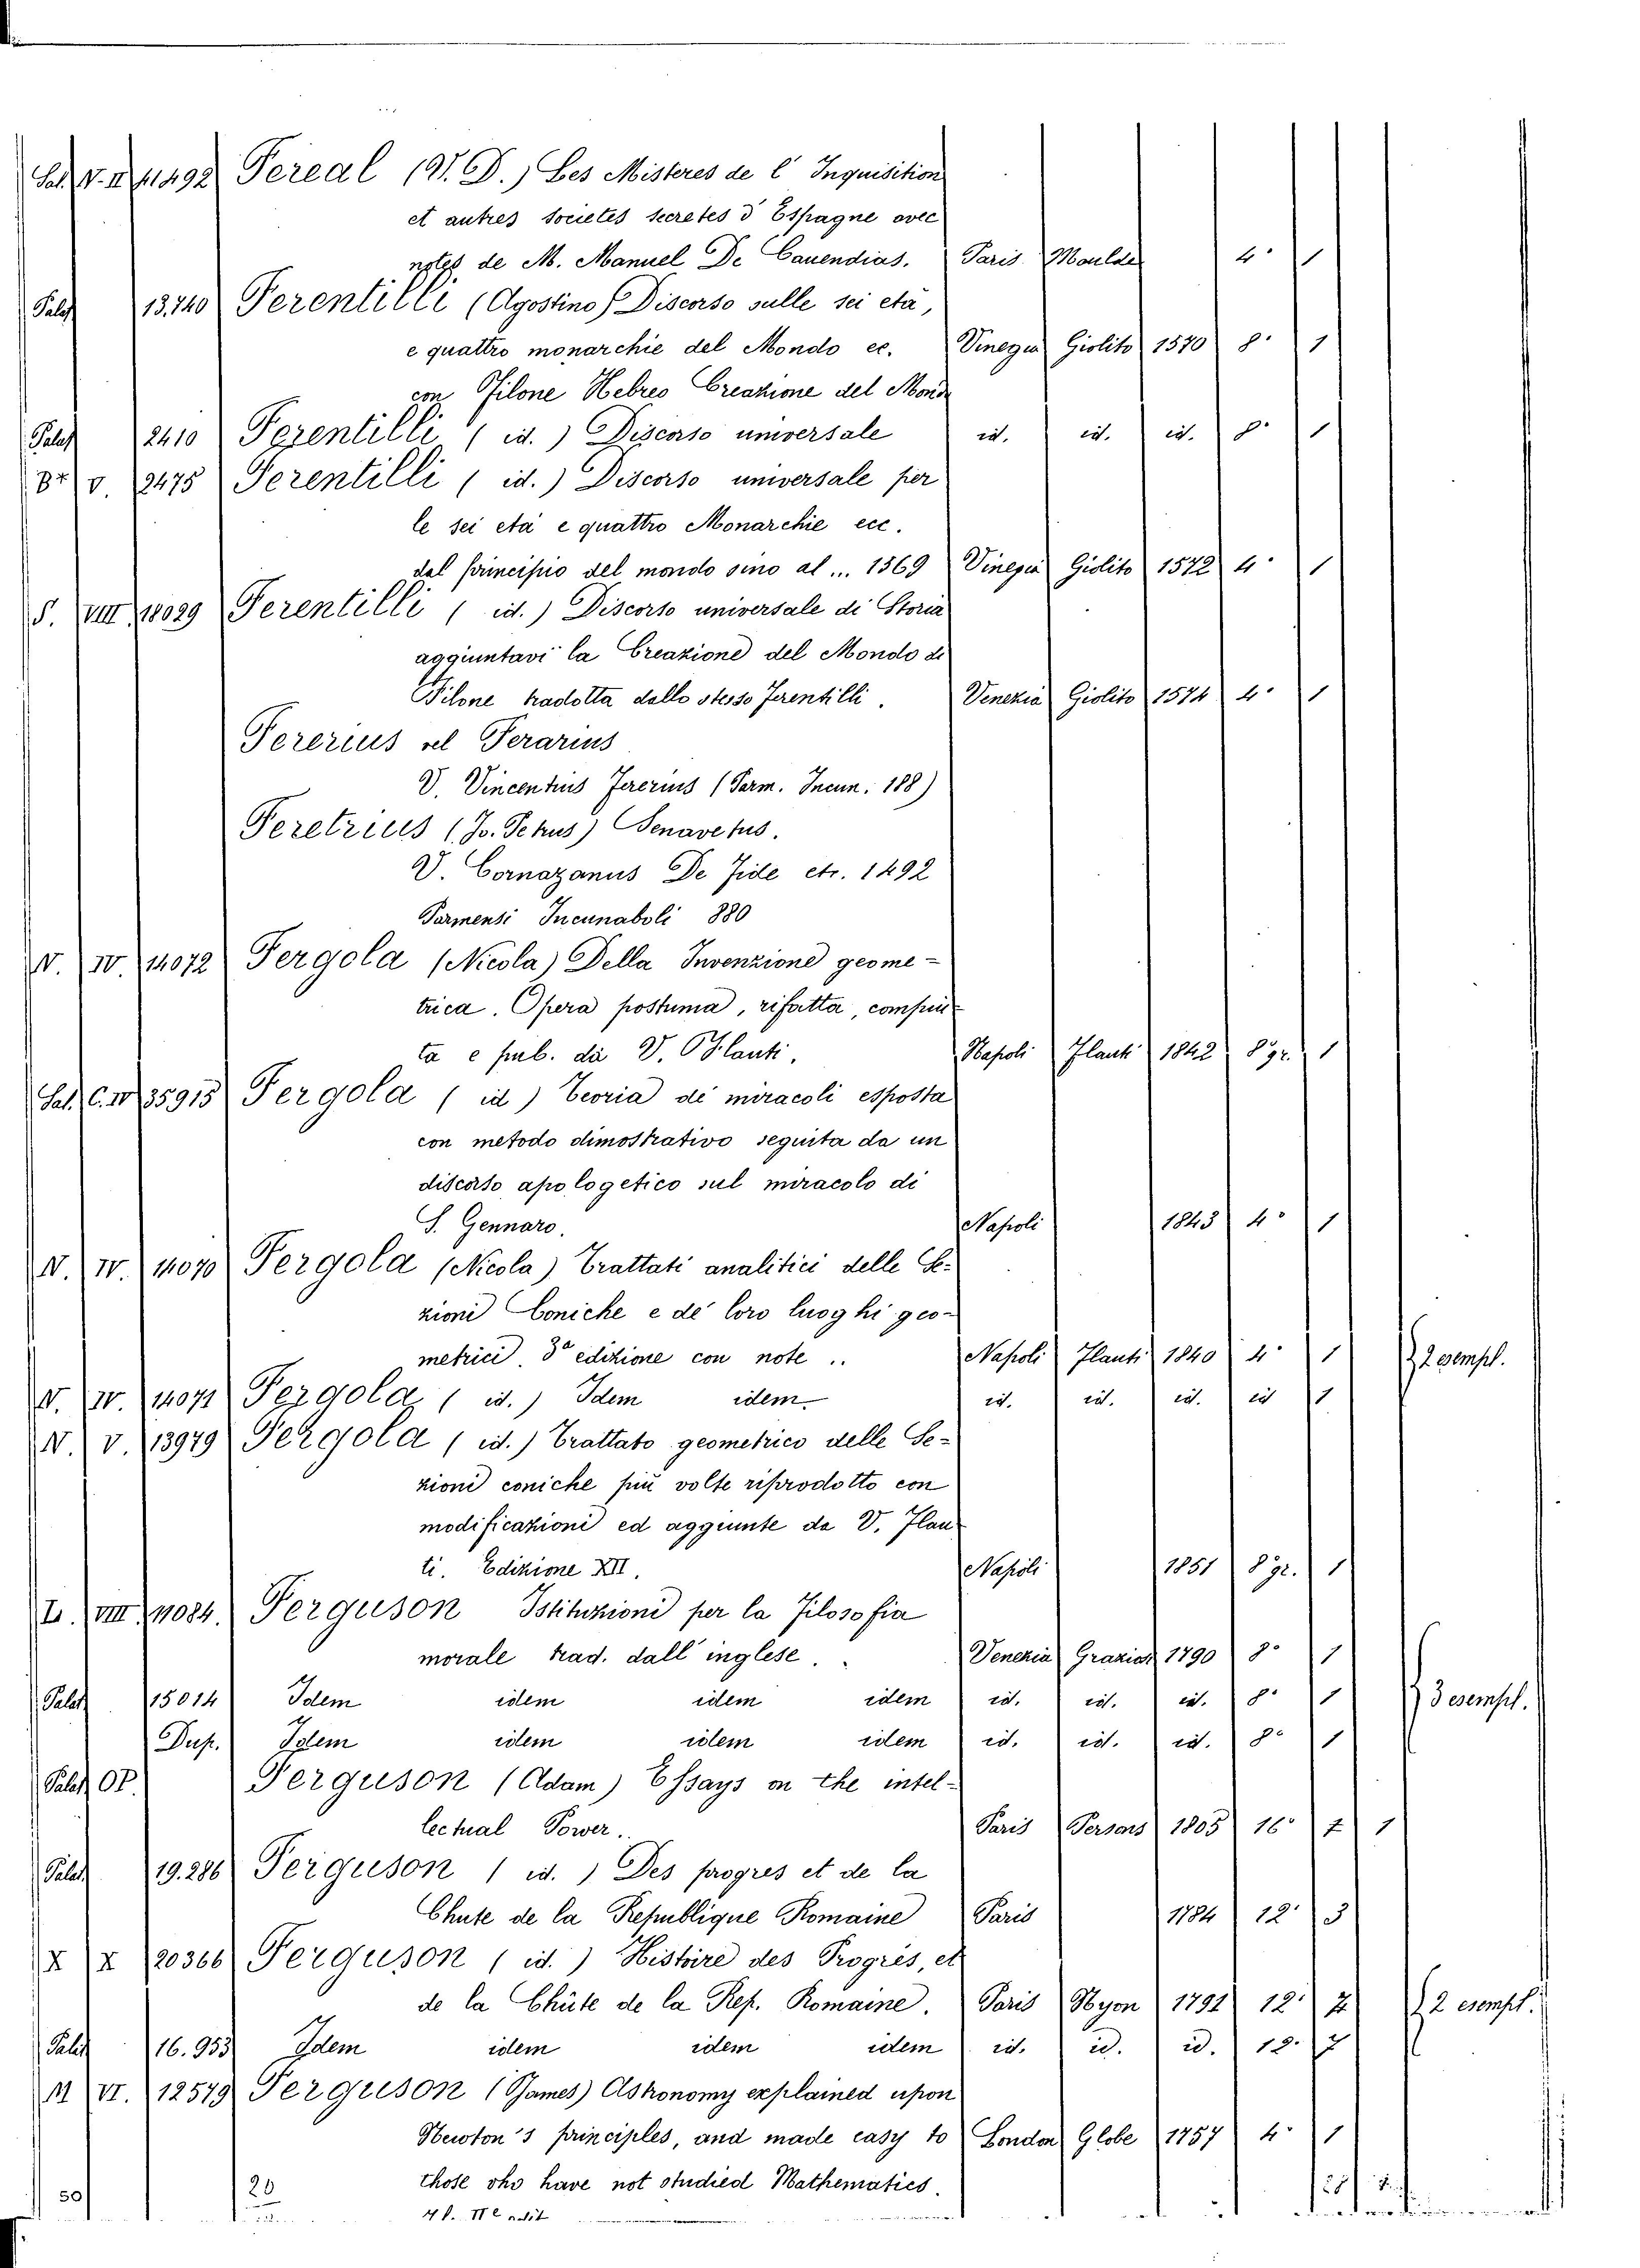 Sal. V. II 41492 Fereal (V. D.) Les Misteres de l' Inquisition
et autres societes secretes d' Espagne avec
notes de M. Manuel De Cauendias. Paris Moulde 4° 1
Palat 13.740 Ferentilli (Agostino) Discorso sulle sei età,
e quattro monarchie del Mondo ec. Vinegia Giolito 1570 8° 1
con Filone Hebreo Creazione del Mondo
Palat 2410 Ferentilli (id.) Discorso universale id. id. id. 8° 1
Br V. 2475 Ferentilli (id.) Discorso universale per
le sei età e quattro Monarchie ecc.
dal principio del mondo sino al ... 1569 Vinegia Giolito 1572 4° 1
S. VIII 18029 Ferentilli (id.) Discorso universale di Storia
aggiuntavi la Creazione del Mondo di
Filone tradotta dallo stesso Ferentilli. Venezia Giolito 1574 4° 1
Fererius vel Ferarius
V. Vincentius Fererius (Parm. Incun. 188)
Feretrius (Jo. Petrus) Senavetus.
V. Cornazanus De Fide etc. 1492
Parmensi Incunaboli 880
N. IV. 14072 Fergola (Nicola) Della Invenzione geome-
trica. Opera postuma, rifatta, compiu-
ta e pub. da V. Flauti. Napoli Flauti 1842 8° gr. 1
Sal. C. IV 35915 Fergola (id) Teoria de' miracoli esposta
con metodo dimostrativo seguita da un
discorso apologetico sul miracolo di
S. Gennaro. Napoli 1843 4° 1
N. IV. 14070 Fergola (Nicola) Trattati analitici delle Se-
zioni Coniche e de' loro luoghi geo-
metrici. 3ª edizione con note .. Napoli Flauti 1840 4° 1 2 esempl.
N. IV. 14071 Fergola (id.) Idem idem id. id. id. id 1
N. V. 13979 Fergola (id.) Trattato geometrico delle Se-
zioni coniche più volte riprodotto con
modificazioni ed aggiunte da V. Flau-
ti. Edizione XII. Napoli 1851 8° gr. 1
L. VIII 11084. Ferguson Istituzioni per la Filosofia
morale trad. dall' inglese. Venezia Graziosi 1790 8° 1
Palat 15014 Idem idem idem idem id. id. id. 8° 1 3 esempl.
Dup. Idem idem idem idem id. id. id. 8° 1
Palat OP. Ferguson (Adam) Essays on the intel-
lectual Power. Paris Persons 1805 16° 1
Palat 19.286 Ferguson (id.) Des progres et de la
Chute de la Republique Romaine Paris 1784 12° 3
X X 20366 Ferguson (id.) Histoire des Progrès, et
de la Chûte de la Rep. Romaine. Paris Nyon 1791 12° 7 2 esempl.
Palat 16.953 Idem idem idem idem id. id. id. 12. 7
M VI. 12579 Ferguson (James) Astronomy explained upon
Newton's principles, and made easy to London Globe 1757 4° 1
those who have not studied Mathematics.
50 20